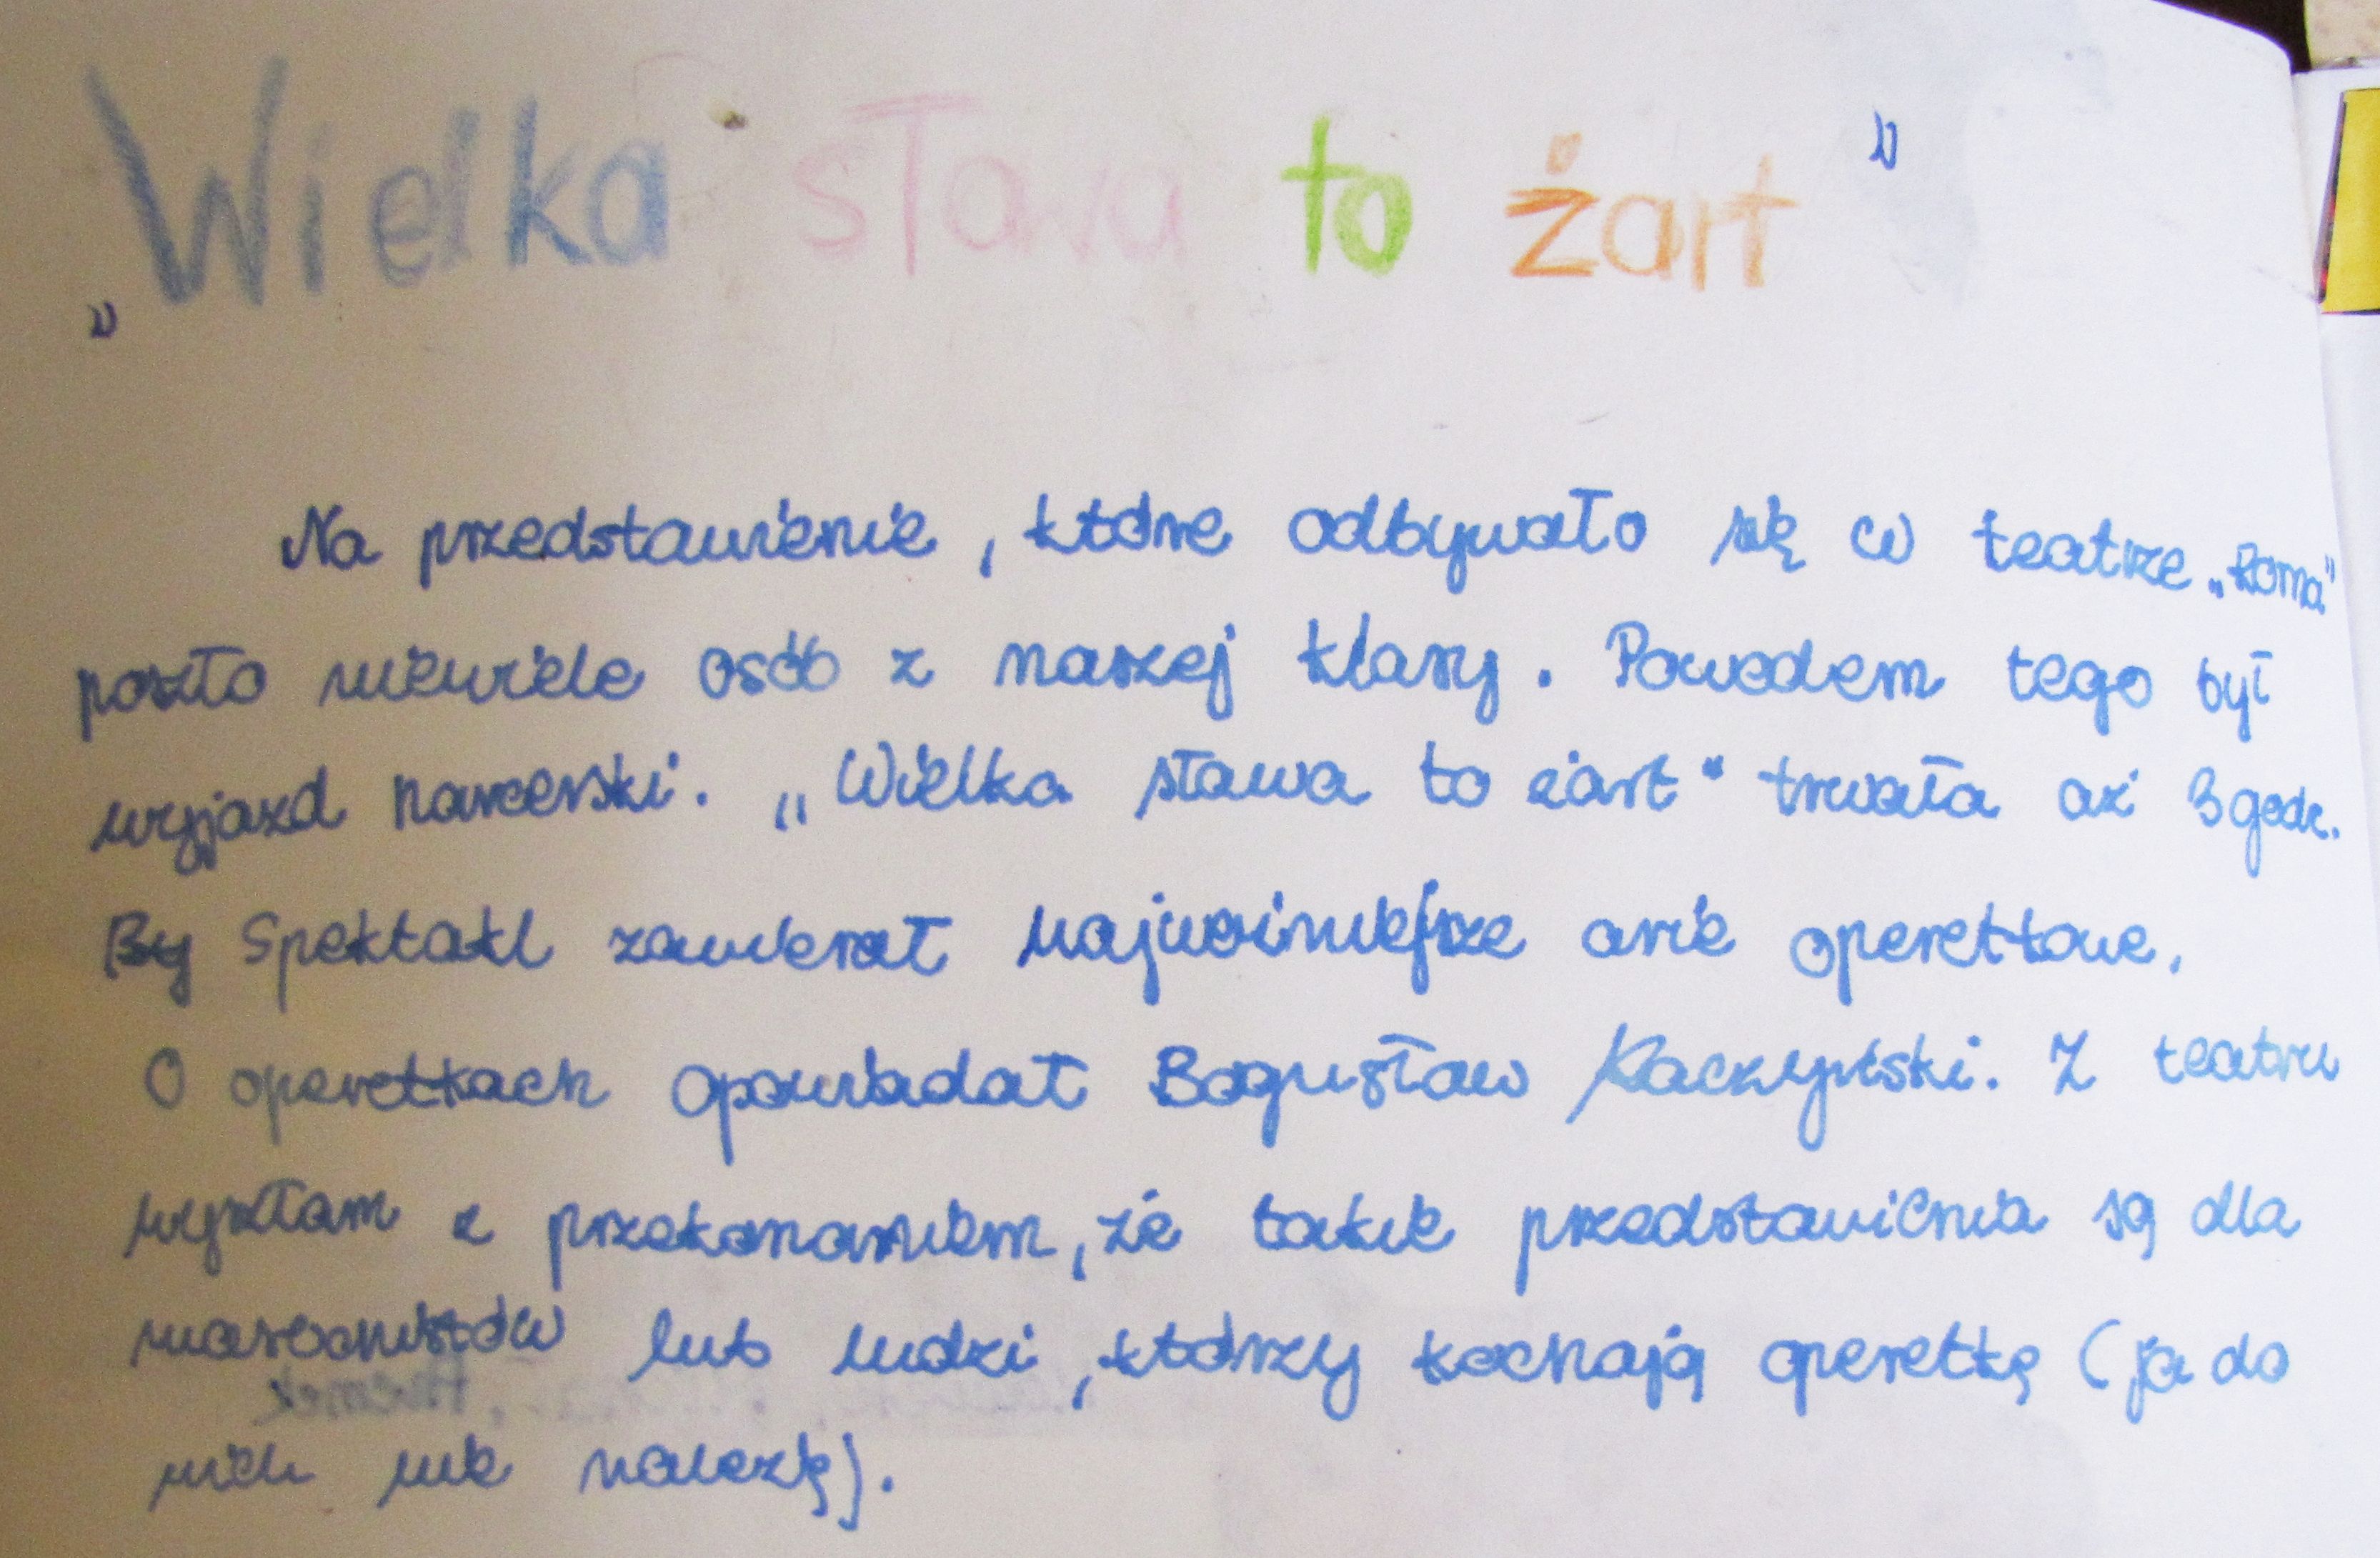 „Wielka sława to żart”
Na przedstawienie, które odbywało się w teatrze „Roma”
poszło niewiele osób z naszej klasy. Powodem tego był
wyjazd harcerski. „Wielka sława to żart" trwała aż 3 godz.
By Spektakl zawierał najważniejsze arie operetkowe.
O operetkach opowiadał Bogusław Kaczyński. Z teatru
wyszłam z przekonaniem, że takie przedstawienia są dla
masochistów lub ludzi, którzy kochają operetkę (ja do
nich nie należę).